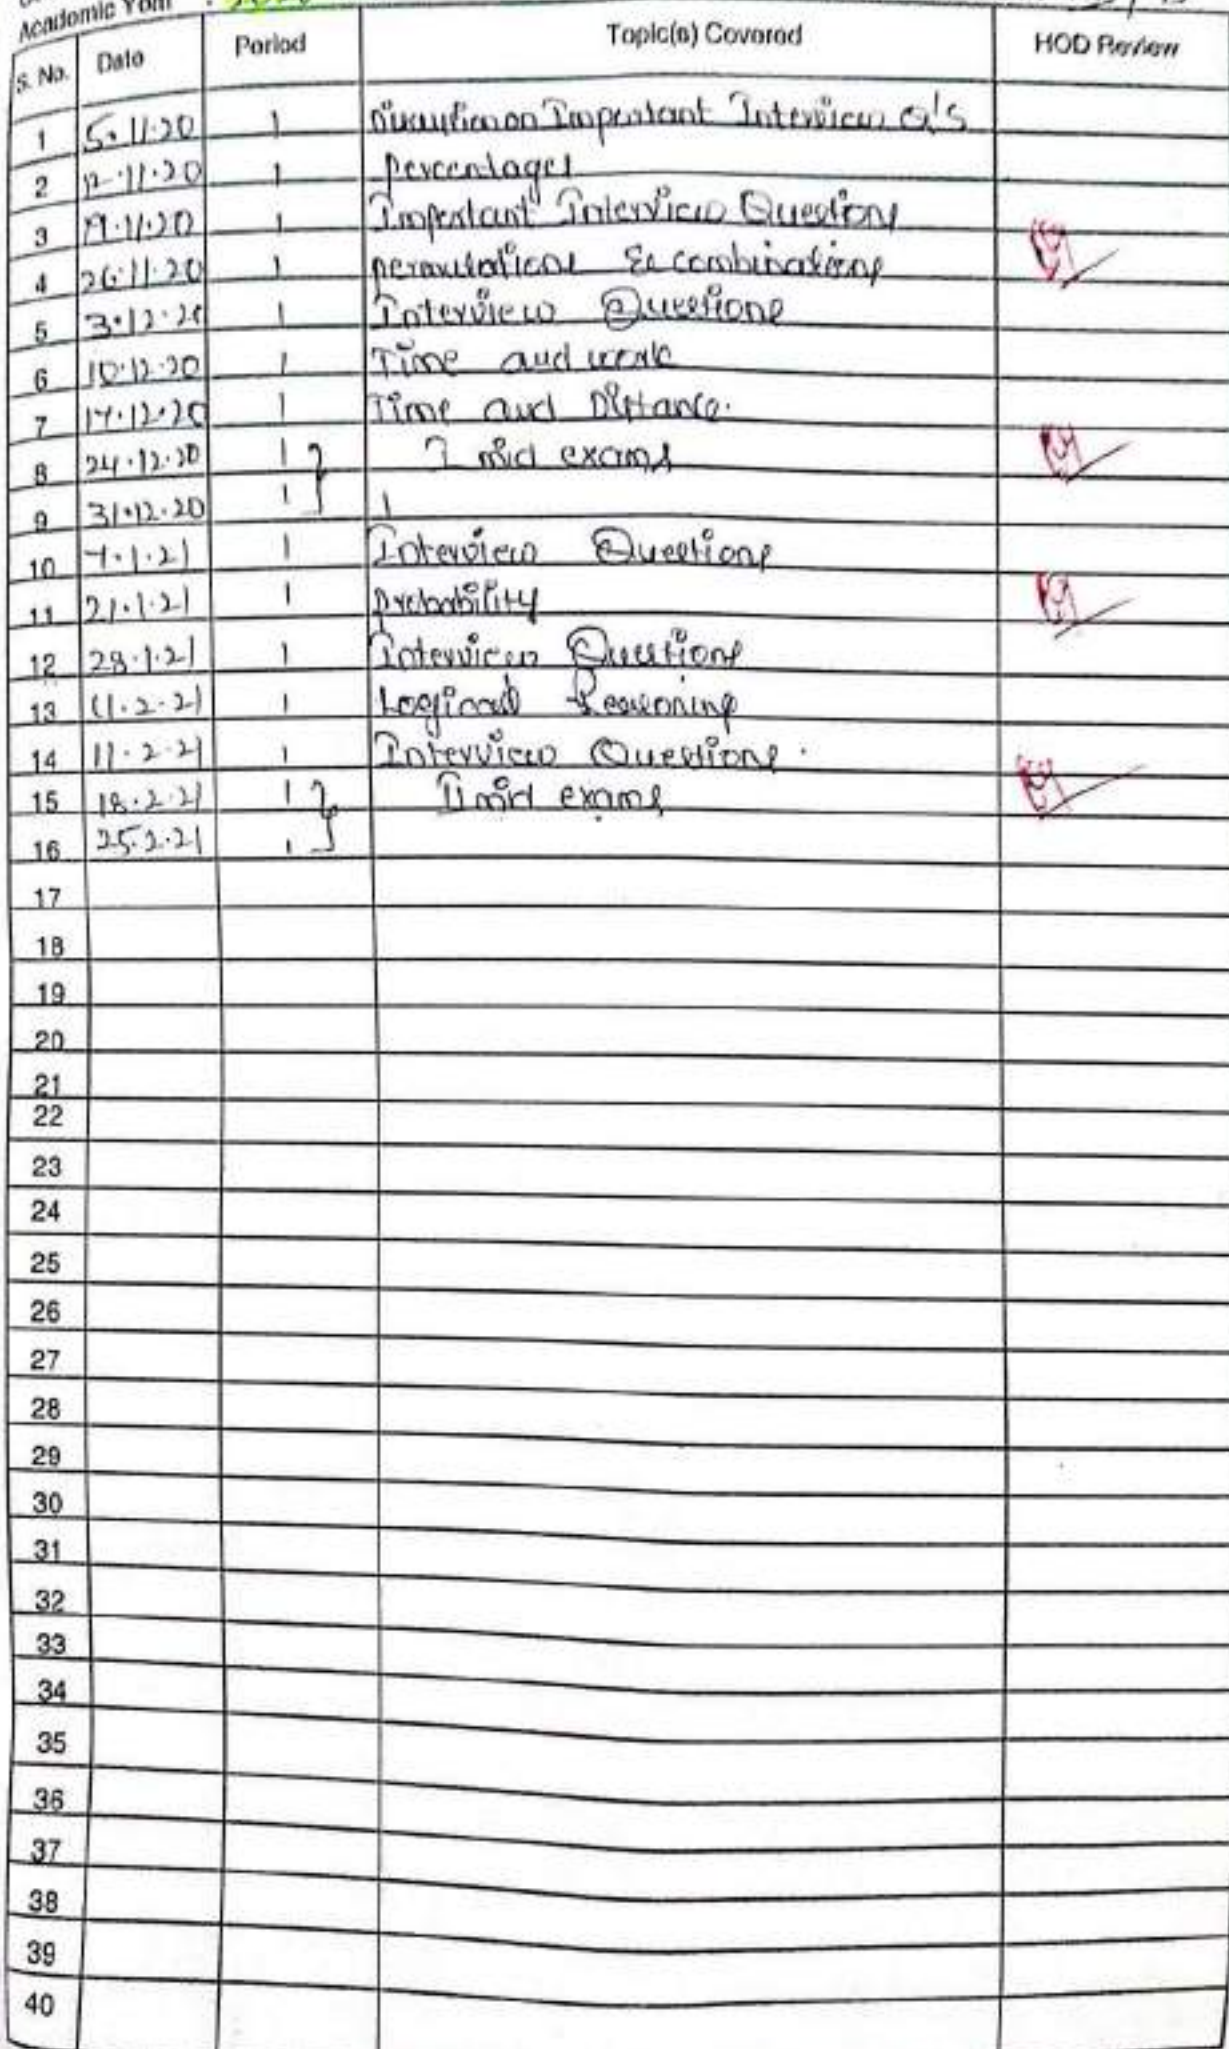 Academic Year :
S. No. Date Period Topic(s) Covered HOD Review
1 5.11.20 1 Discussion on Important Interview Q's
2 12.11.20 1 percentages
3 19.11.20 1 Important Interview Questions
4 26.11.20 1 permutations & combinations
5 3.12.20 1 Interview Questions
6 10.12.20 1 Time and work
7 17.12.20 1 Time and Distance.
8 24.12.20 1 I mid exams
9 31.12.20 1
10 7.1.21 1 Interview Questions
11 21.1.21 1 probability
12 28.1.21 1 Interview Questions
13 1 Logical Reasoning
14 11.2.21 1 Interview Questions.
15 18.2.21 1 II mid exams
16 25.2.21 1
17
18
19
20
21
22
23
24
25
26
27
28
29
30
31
32
33
34
35
36
37
38
39
40